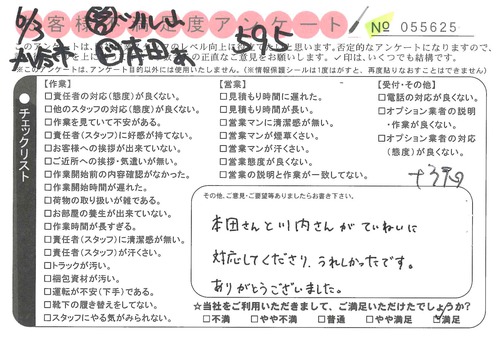 お客様満足度アンケート
№ 055625
6/3
595
※このアンケートは、アンケート目的以外には使用いたしません。(※情報保護シールは1度はがすと、再度貼りなおすことはできません)
チェックリスト
【作業】
□責任者の対応(態度)が良くない。
□他のスタッフの対応(態度)が良くない。
□作業を見ていて不安がある。
□責任者(スタッフ)に好感が持てない。
□お客様への挨拶が出来ていない。
□ご近所への挨拶・気遣いが無い。
□作業開始前の内容確認がなかった。
□作業開始時間が遅れた。
□荷物の取り扱いが雑である。
□お部屋の養生が出来ていない。
□作業時間が長すぎる。
□責任者(スタッフ)に清潔感が無い。
□責任者(スタッフ)が汗くさい。
□トラックが汚い。
□梱包資材が汚い。
□運転が不安(下手)である。
□靴下の履き替えをしてない。
□スタッフにやる気がみられない。
【営業】
□見積もり時間に遅れた。
□見積もり時間が長い。
□営業マンに清潔感が無い。
□営業マンが煙草くさい。
□営業マンが汗くさい。
□営業態度が良くない。
□営業の説明と作業が一致してない。
【受付・その他】
□電話の対応が良くない。
□オプション業者の説明
・作業が良くない。
□オプション業者の対応
(態度)が良くない。
その他、ご意見・ご要望等ありましたらお書き下さい。
本田さんと川内さんがていねいに
対応してくださり、うれしかったです。
ありがとうございました。
☆当社をご利用いただきまして、ご満足いただけたでしょうか?
□不満 □やや不満 □普通 □やや満足 ☑満足